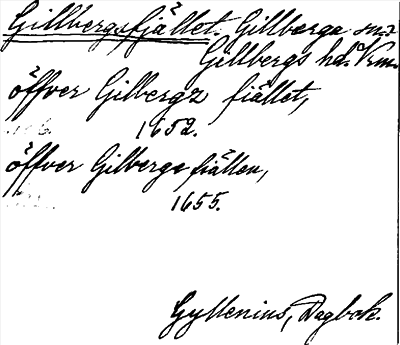 Gillbergafjället. Gillberga sn.
Gillbergs hd. Vrm.
öffver Gilbergz fiället,
1652.
öffver Gilberge fiällen,
1655.
Gyllenius, Dagbok.